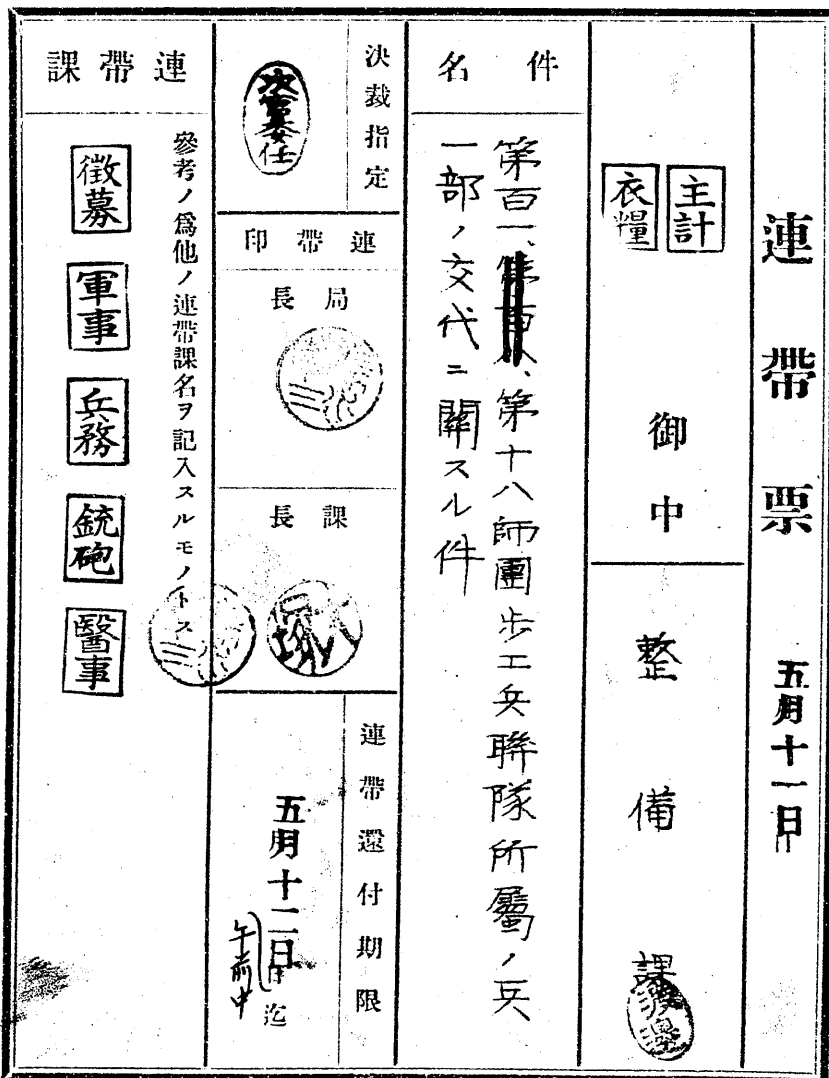 連帶票
五月十一日
主計
衣糧
御中
整備課
渡邊
件名
第百一、第十八師團步工兵聯隊所屬ノ兵
一部ノ交代ニ關スル件
決裁指定
次官委任
連帶印
局長
課長
連帶還付期限
五月十二日迄
午前中
連帶課
參考ノ爲他ノ連帶課名ヲ記入スルモノトス
徵募
軍事
兵務
銃砲
醫事